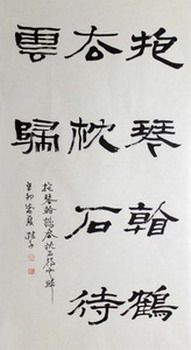 抱琴看鶴
去枕石待
雲歸
抱琴看鶴去枕石待雲歸
辛卯